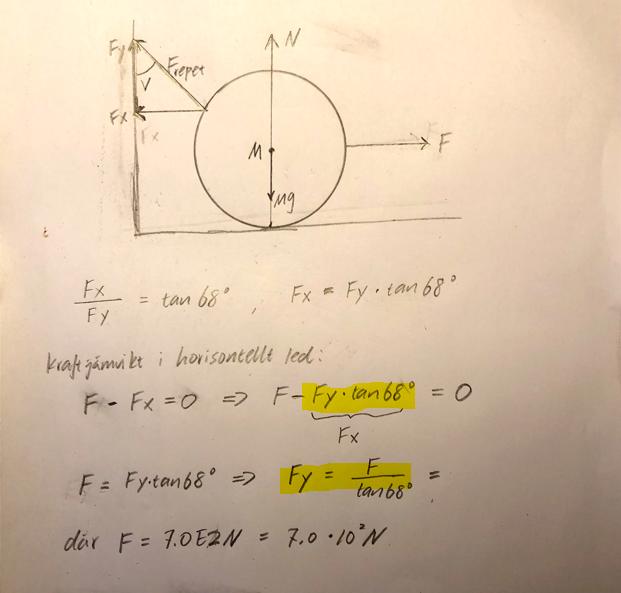 N
Fy
Frepet
V
Fx
Fx
F
M
Mg
Fx/Fy = tan 68° , Fx = Fy · tan 68°
Kraftjämvikt i horisontellt led:
F - Fx = 0 => F - Fy · tan 68° = 0
Fx
F = Fy · tan 68° => Fy = F/tan 68° =
där F = 7.0E2N = 7.0 · 10² N